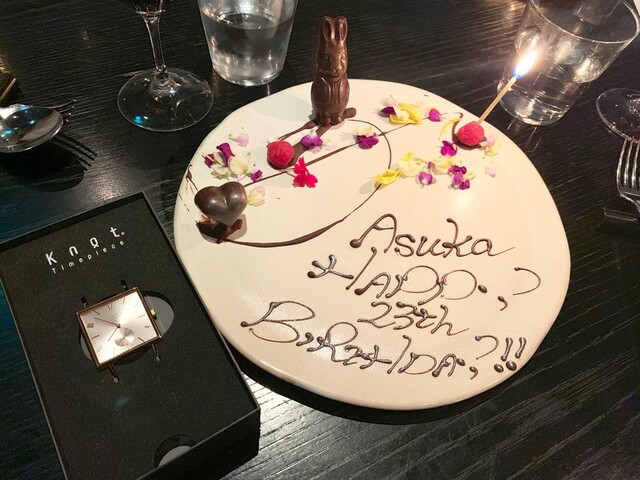 Knot
Timepiece
Asuka
HAPPY
23th
BiRtHDAy!!